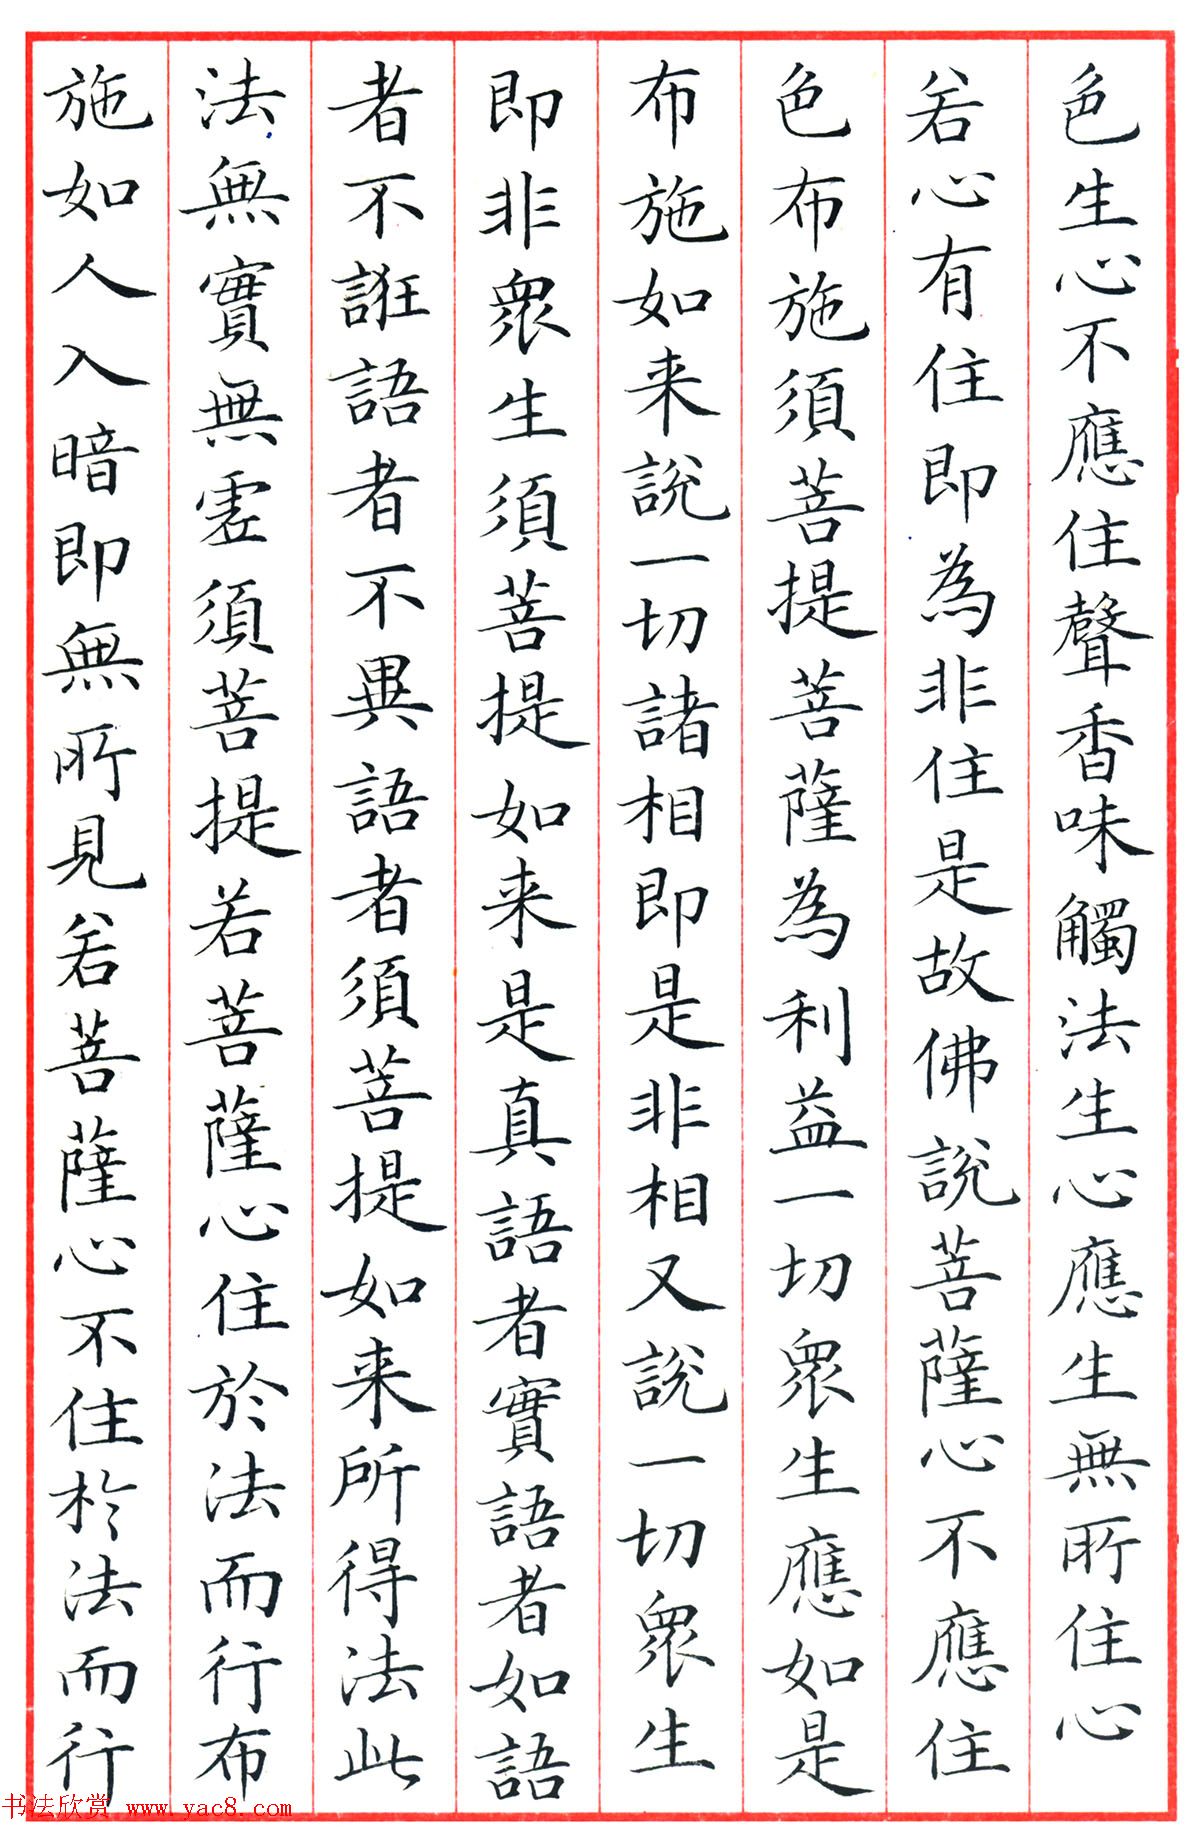 色生心不應住聲香味觸法生心應生無所住心
若心有住即為非住是故佛說菩薩心不應住
色布施須菩提菩薩為利益一切眾生應如是
布施如来說一切諸相即是非相又說一切眾生
即非眾生須菩提如来是真語者實語者如語
者不誑語者不異語者須菩提如来所得法此
法無實無虛須菩提若菩薩心住於法而行布
施如人入暗即無所見若菩薩心不住於法而行
书法欣赏 www.yac8.com